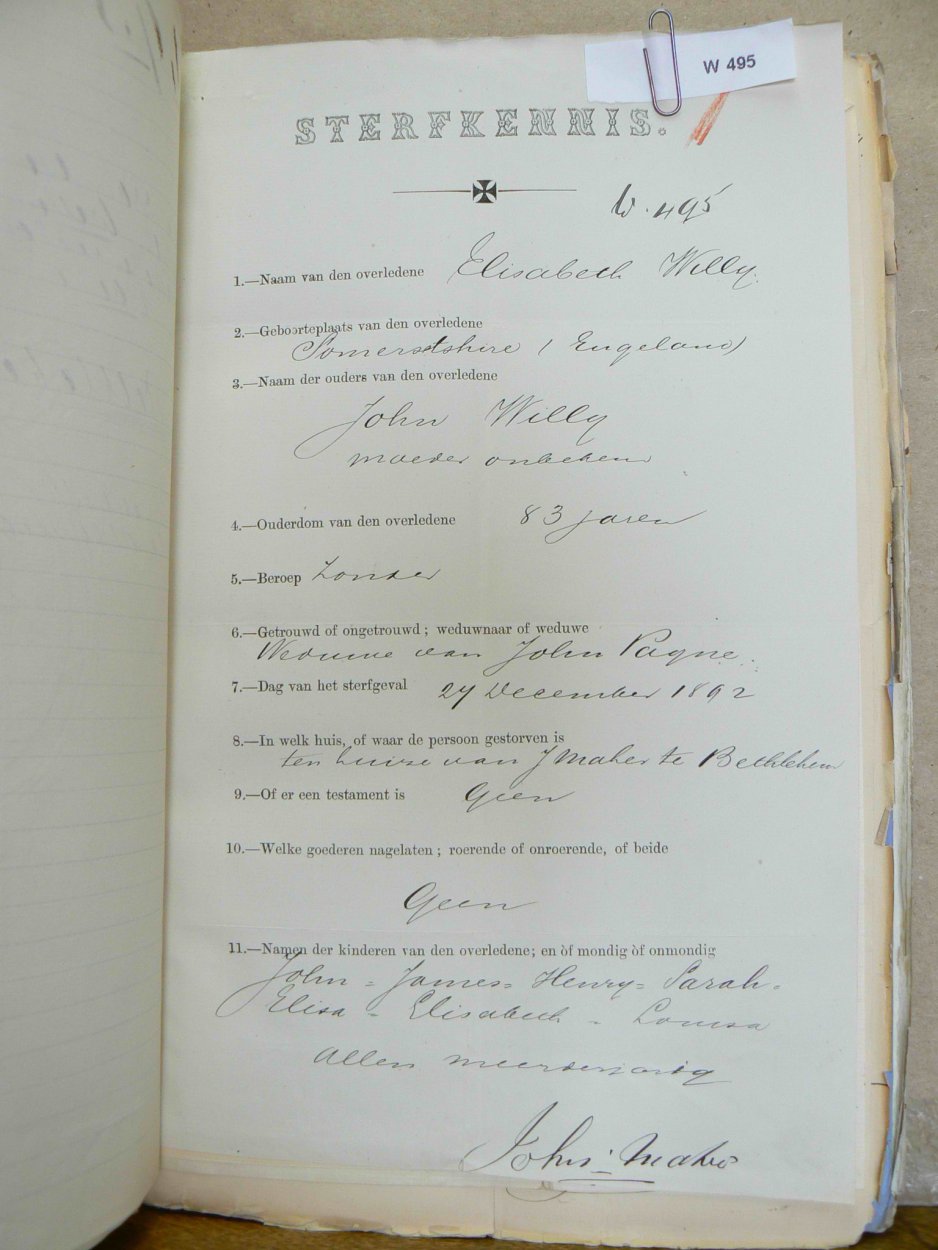 W 495
STERFKENNIS.
W. 495
1.—Naam van den overledene Elisabeth Willy.
2.—Geboorteplaats van den overledene
Somersetshire (Engeland)
3.—Naam der ouders van den overledene
John Willy
moeder onbekend
4.—Ouderdom van den overledene 83 jaren
5.—Beroep Zonder
6.—Getrouwd of ongetrouwd; weduwnaar of weduwe
Weduwe van John Payne.
7.—Dag van het sterfgeval 27 December 1892
8.—In welk huis, of waar de persoon gestorven is
ten huize van J Maher te Bethlehem
9.—Of er een testament is Geen
10.—Welke goederen nagelaten; roerende of onroerende, of beide
Geen
11.—Namen der kinderen van den overledene; en òf mondig òf onmondig
John = James = Henry = Sarah =
Elisa = Elisabeth = Louisa
Allen meerderjarig
John Maher